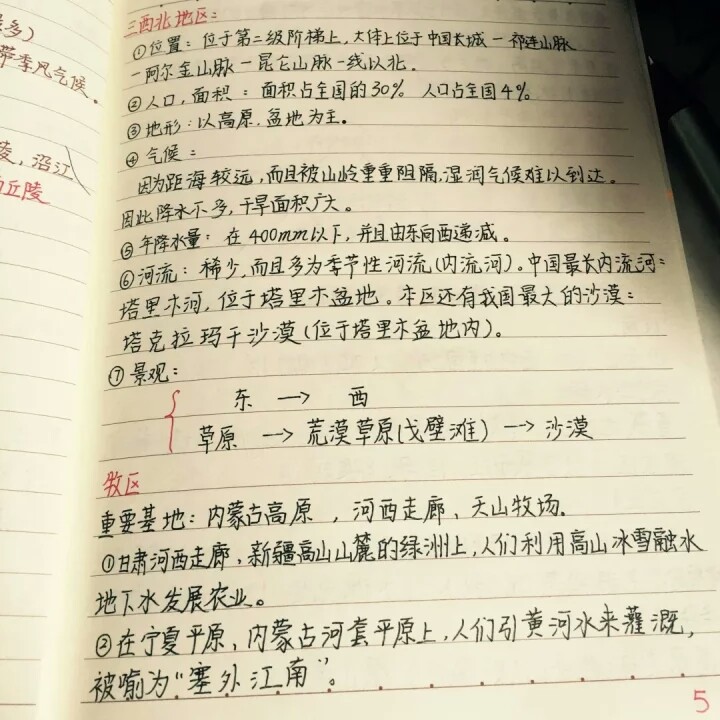 多)
带季风气候。
陵,沿江
丘陵
三西北地区:
①位置:位于第二级阶梯上,大体上位于中国长城一祁连山脉
一阿尔金山脉一昆仑山脉一线以北.
②人口,面积:面积占全国的30%. 人口占全国4%。
③地形:以高原.盆地为主。
④气候:
因为距海较远,而且被山岭重重阻隔,湿润气候难以到达。
因此降水不多,干旱面积广大。
⑤年降水量:在400mm以下,并且由东向西递减。
⑥河流:稀少,而且多为季节性河流(内流河)。中国最长内流河:
塔里木河,位于塔里木盆地。本区还有我国最大的沙漠:
塔克拉玛干沙漠(位于塔里木盆地内)。
⑦景观:
东 → 西
草原 → 荒漠草原(戈壁滩) → 沙漠
牧区
重要基地:内蒙古高原,河西走廊、天山牧场.
①甘肃河西走廊,新疆高山山麓的绿洲上,人们利用高山冰雪融水
地下水发展农业。
②在宁夏平原、内蒙古河套平原上,人们引黄河水来灌溉,
被喻为“塞外江南”。
5